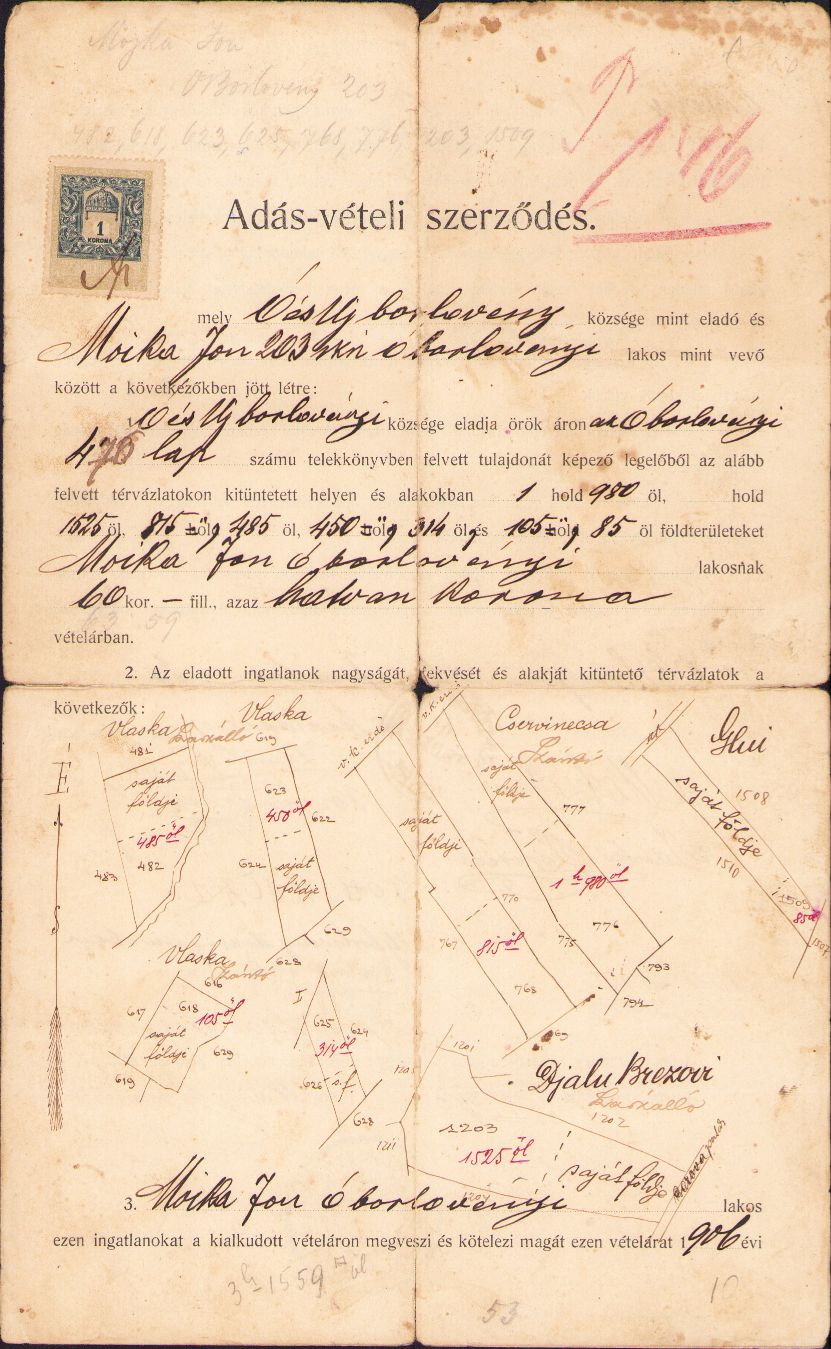 Mojka Ion
OBorlovény 203
482, 618, 623, 625, 768, 776, 1203, 1509
1
KORONA
Adás-vételi szerződés.
mely Ó és Uj borlovény községe mint eladó és
Moika Jon 203 óborlovényi lakos mint vevő
között a következőkben jött létre:
Ó és Uj borlovényi községe eladja örök áron az Óborlovényi
470 lap számu telekkönyvben felvett tulajdonát képező legelőből az alább
felvett térvázlatokon kitüntetett helyen és alakokban 1 hold 980 öl, hold
1525 öl, 815 öl, 485 öl, 450 öl, 314 öl és 105 öl, 85 öl földterületeket
Moika Jon óborlovényi lakosnak
60 kor. — fill., azaz hatvan korona
63 59
vételárban.
2. Az eladott ingatlanok nagyságát, fekvését és alakját kitüntető térvázlatok a
következők:
Vlaska
Kaszálló
481
saját
földje
485 öl
482
483
Vlaska
619
623
450 öl
622
624
saját
földje
629
628
v. k. erdő
saját
földje
770
767
815 öl
768
769
Cservinecsa
Szántó
saját
földje
777
1 h 980 öl
776
775
793
794
út
Glui
saját földje
1508
1510
1509
85 öl
1507
É
Vlaska
Szántó
616
617
618
105 öl
saját
földje
629
619
625
624
314 öl
626
s. f.
628
1201
Djalu Brezovi
Kaszálló
1202
1203
1525 öl
1211
1204
saját földje
3. Moika Jon óborlovényi lakos
ezen ingatlanokat a kialkudott vételáron megveszi és kötelezi magát ezen vételárat 1906 évi
3 h 1559 öl
53